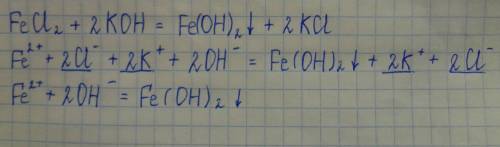 FeCl₂ + 2KOH = Fe(OH)₂↓ + 2KCl
Fe²⁺ + 2Cl⁻ + 2K⁺ + 2OH⁻ = Fe(OH)₂↓ + 2K⁺ + 2Cl⁻
Fe²⁺ + 2OH⁻ = Fe(OH)₂↓